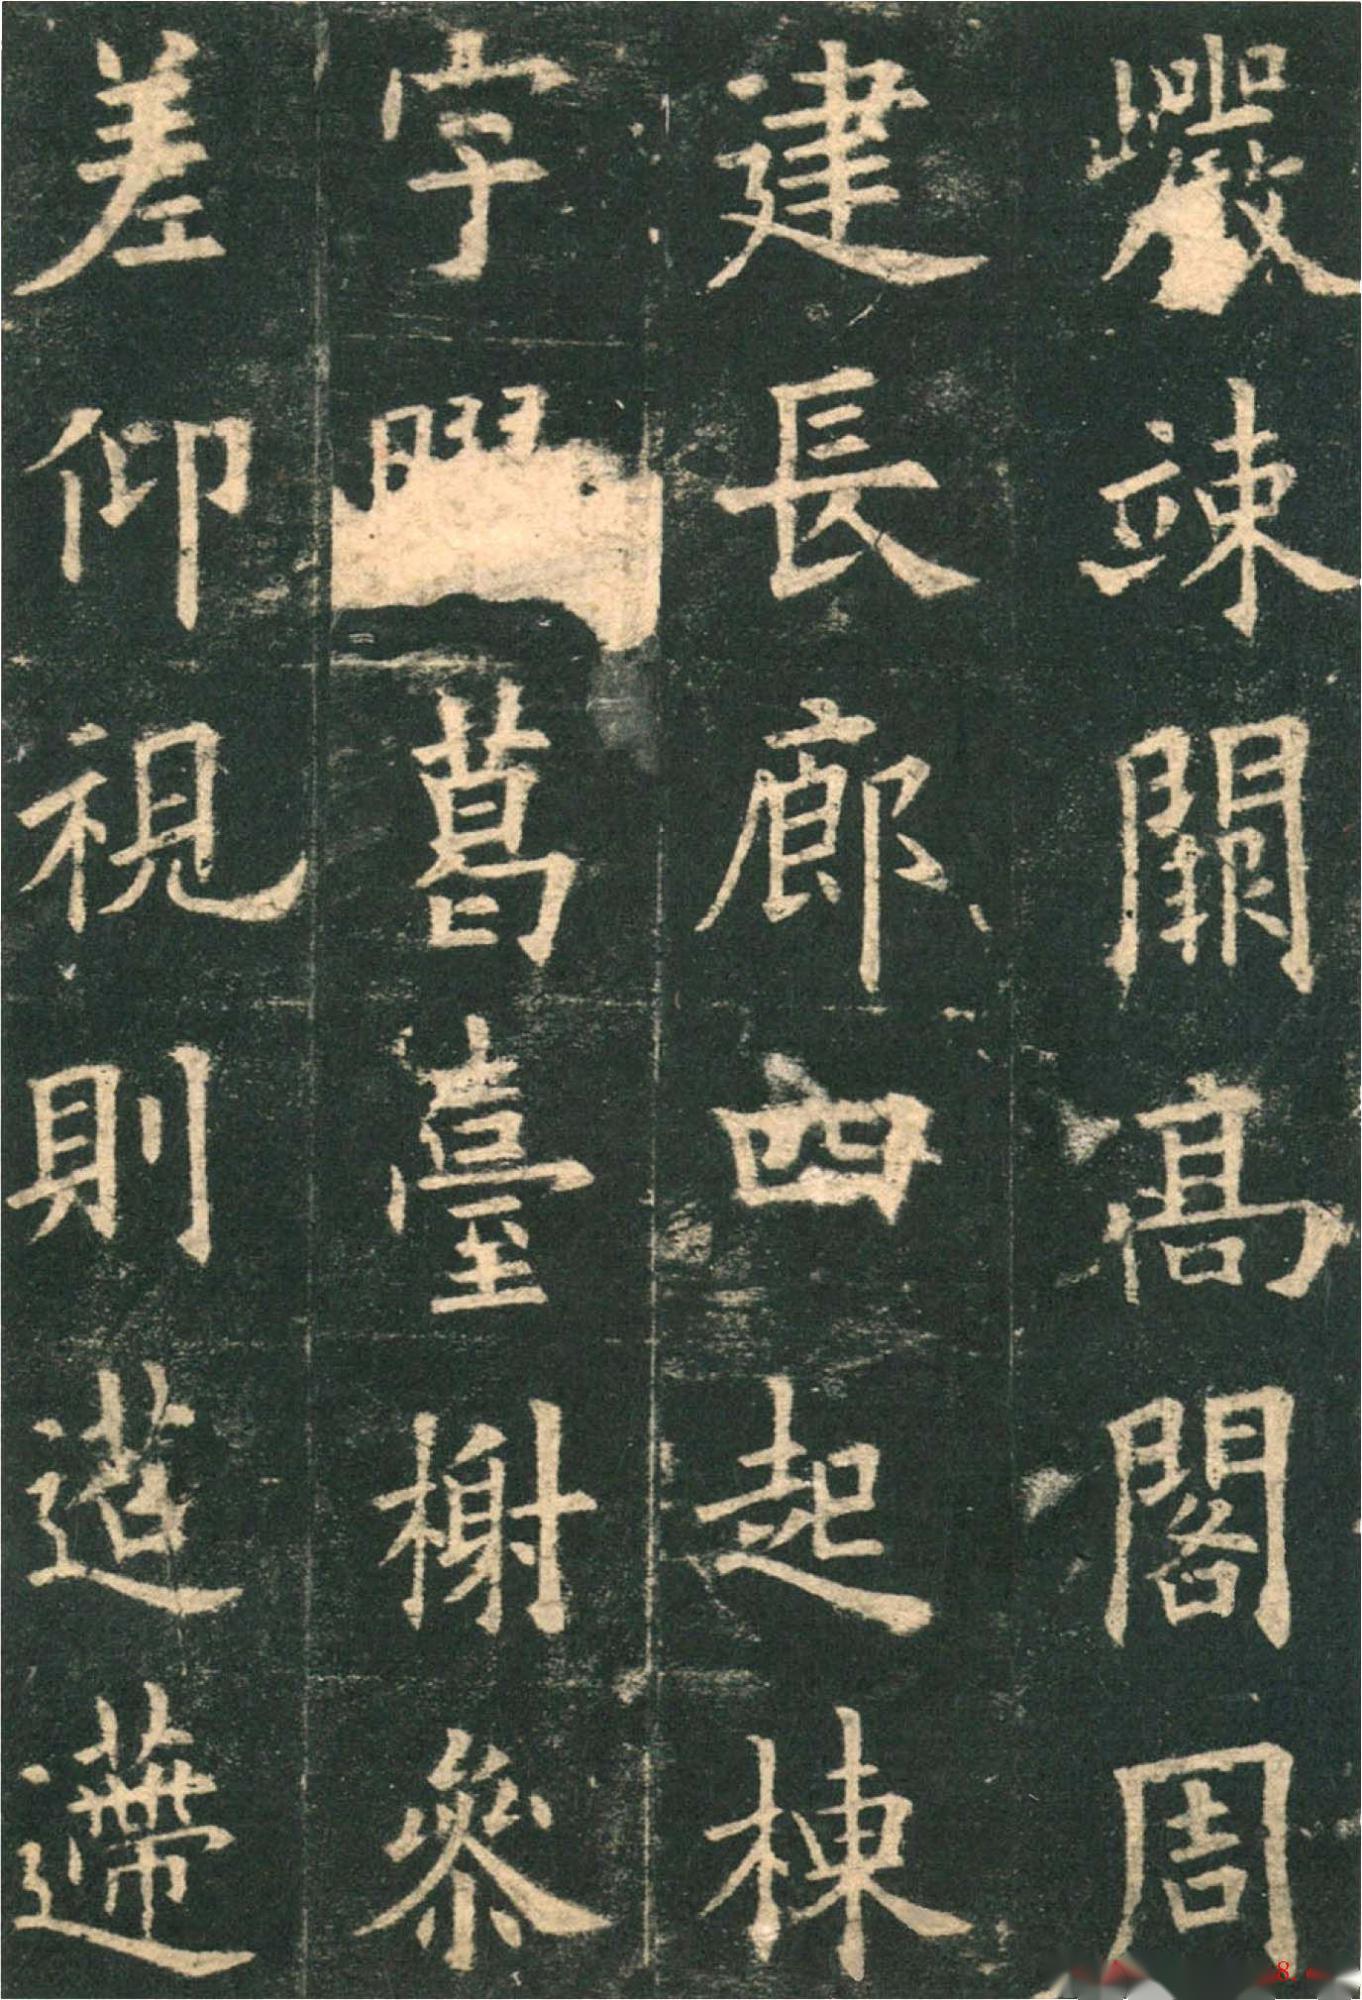 巖竦闕高閣周
建長廊四起棟
宇葛臺榭參
差仰視則迢遰
8